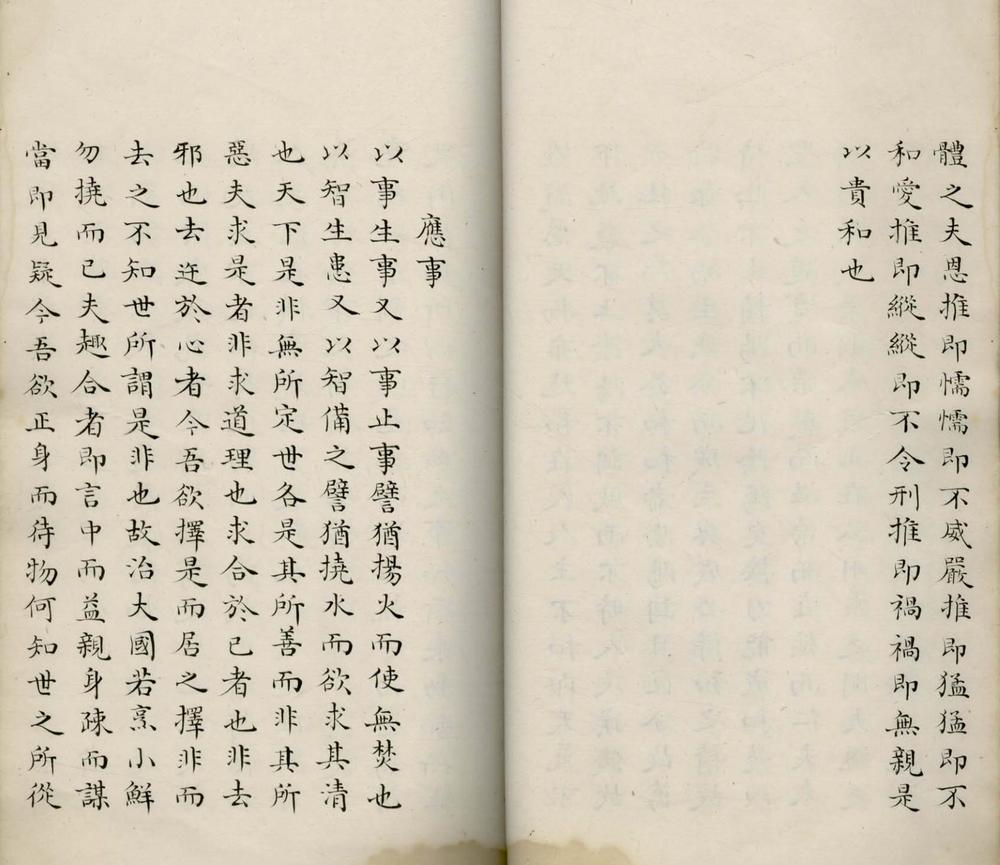 體之夫恩推即懦懦即不威嚴推即猛猛即不
和愛推即縱縱即不令刑推即禍禍即無親是
以貴和也
應事
以事生事又以事止事譬猶揚火而使無焚也
以智生患又以智備之譬猶撓水而欲求其清
也天下是非無所定世各是其所善而非其所
惡夫求是者非求道理也求合於已者也非去
邪也去迕於心者今吾欲擇是而居之擇非而
去之不知世所謂是非也故治大國若烹小鮮
勿撓而已夫趣合者即言中而益親身疎而謀
當即見疑今吾欲正身而待物何知世之所從